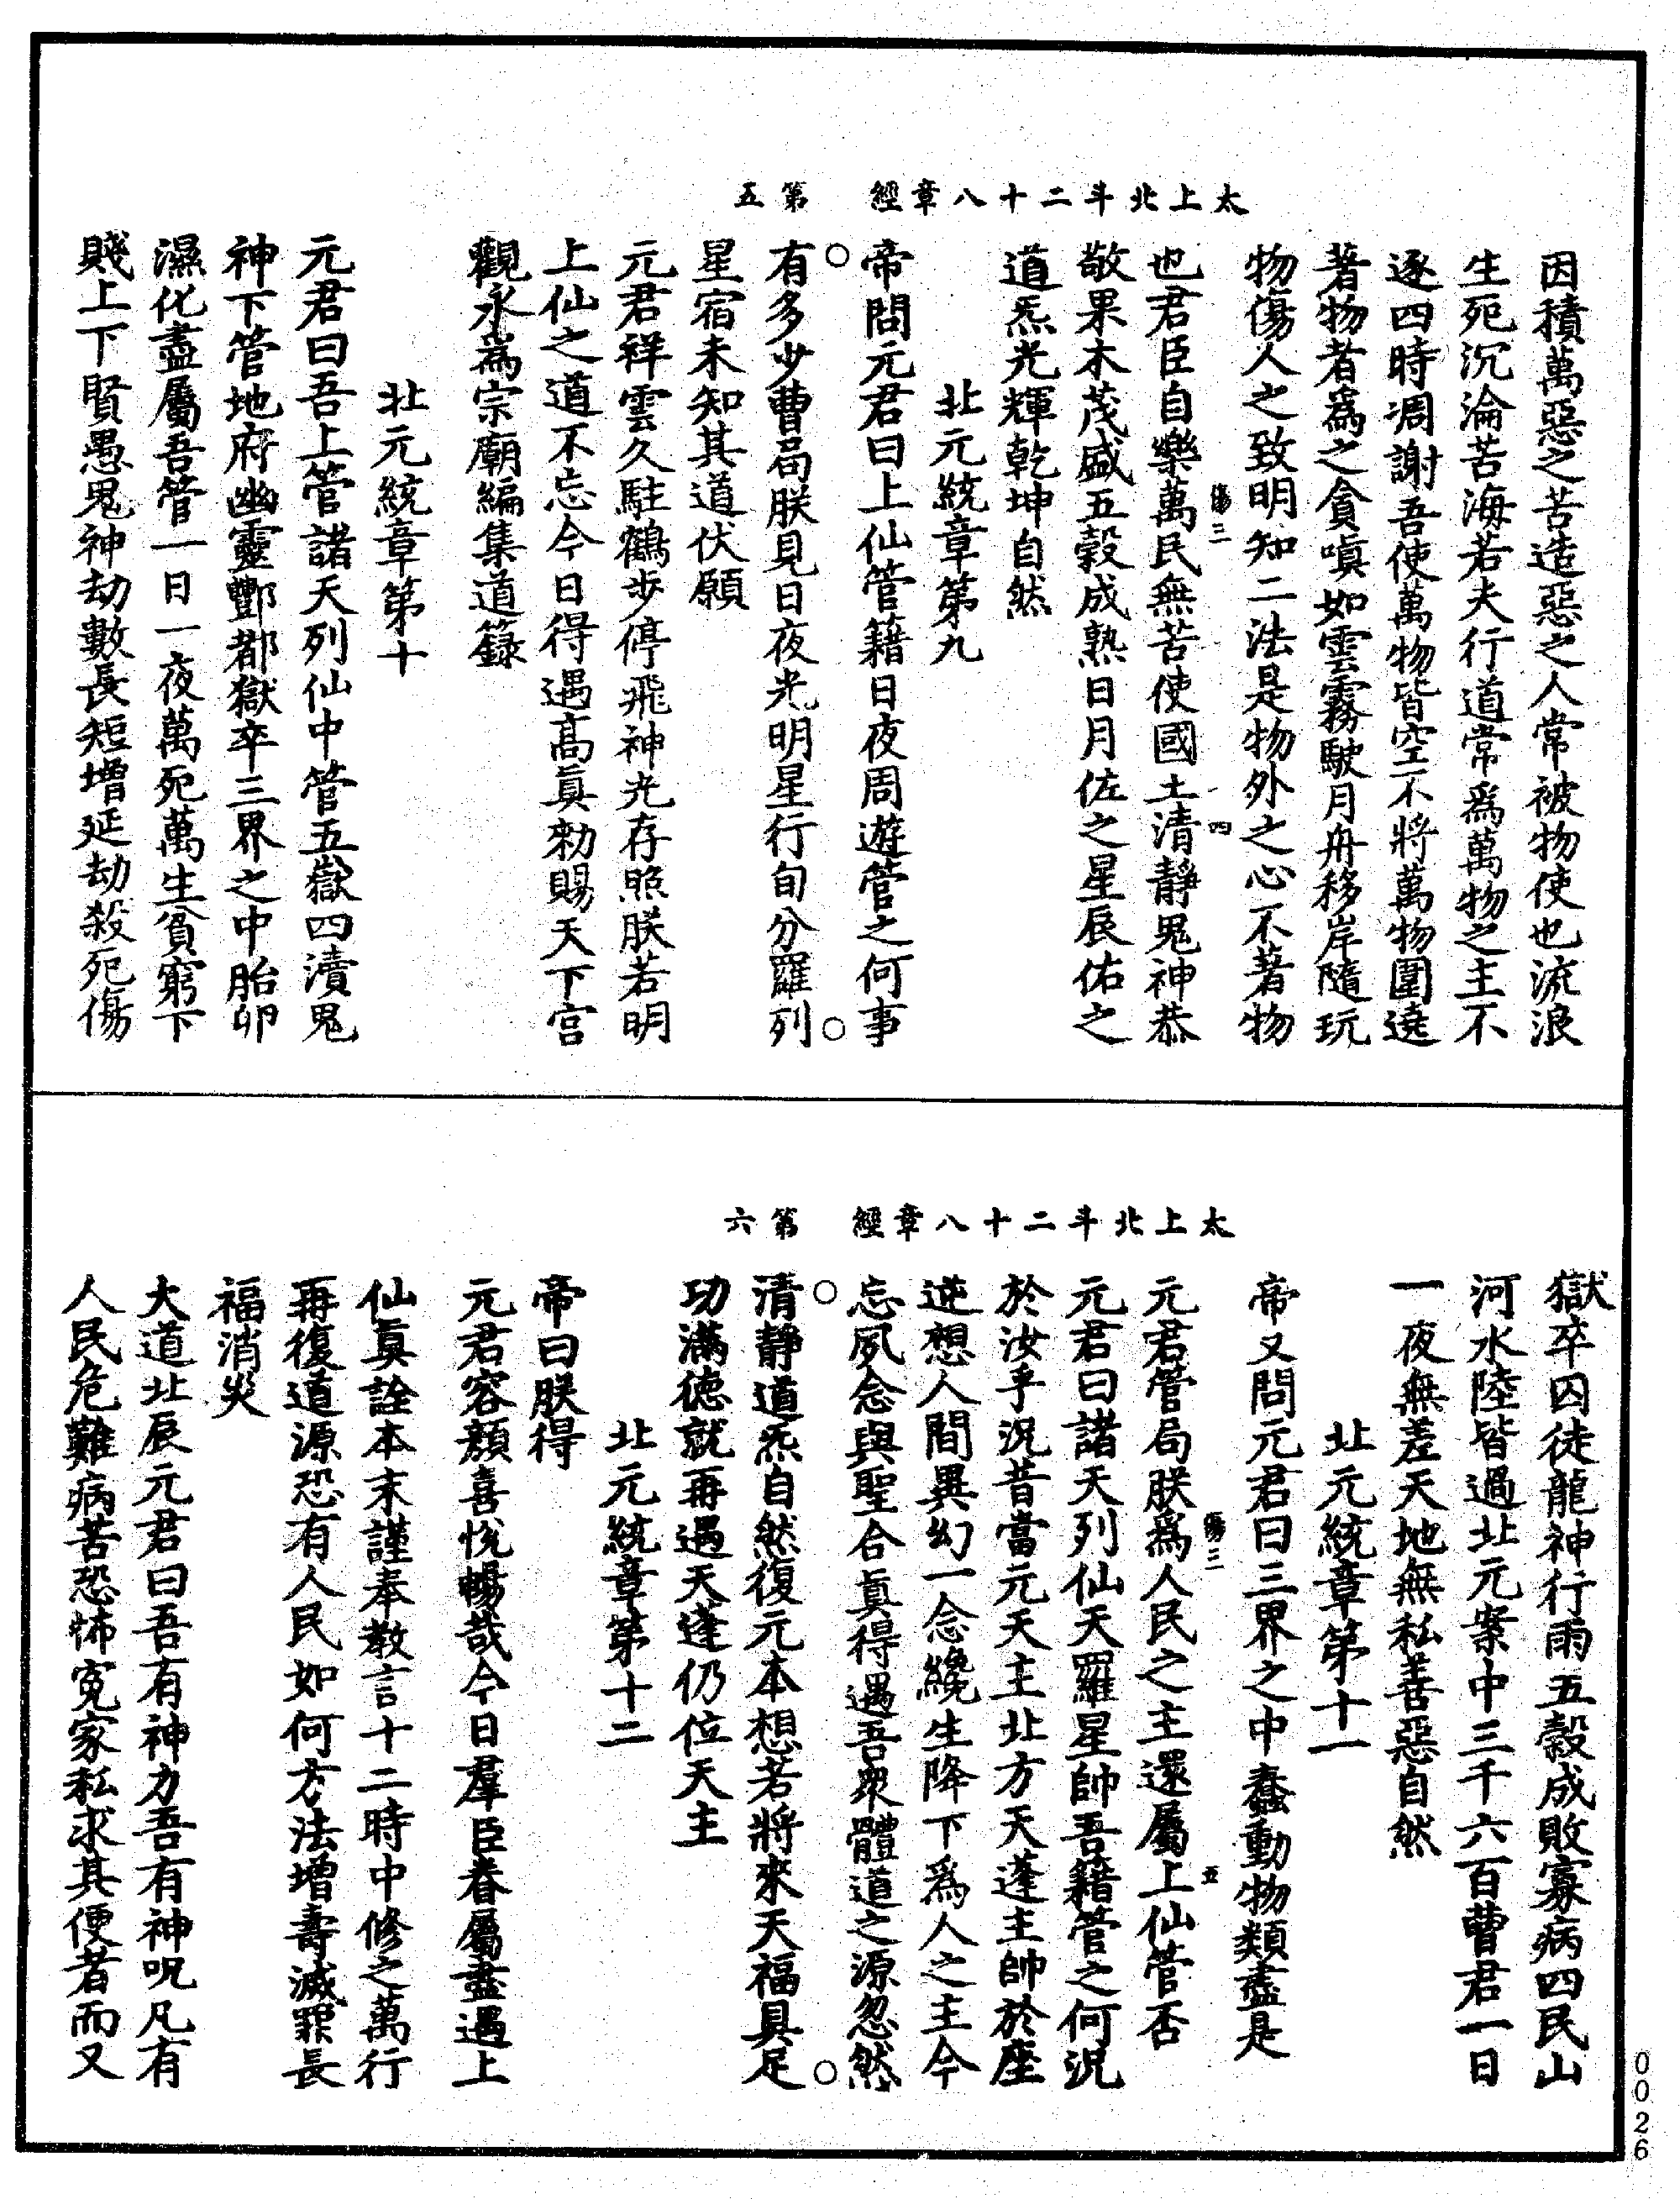 太上北斗二十八章經　第五
因積萬惡之苦造惡之人常被物使也流浪
生死沉淪苦海若夫行道常爲萬物之主不
逐四時凋謝吾使萬物皆空不將萬物圍遶
著物者爲之貪嗔如雲霧駛月舟移岸隨玩
物傷人之致明知二法是物外之心不著物
傷三　四
也君臣自樂萬民無苦使國土清靜鬼神恭
敬果木茂盛五穀成熟日月佐之星辰佑之
道炁光輝乾坤自然
北元統章第九
帝問元君曰上仙管籍日夜周遊管之何事
有多少曹局朕見日夜光明星行旬分羅列
星宿未知其道伏願
元君祥雲久駐鶴步停飛神光存照朕若明
上仙之道不忘今日得遇高眞勑賜天下宮
觀永爲宗廟編集道籙
北元統章第十
元君曰吾上管諸天列仙中管五嶽四瀆鬼
神下管地府幽靈酆都獄卒三界之中胎卵
濕化盡屬吾管一日一夜萬死萬生貧窮下
賤上下賢愚鬼神劫數長短增延劫殺死傷
太上北斗二十八章經　第六
獄卒囚徒龍神行雨五穀成敗寡病四民山
河水陸皆過北元案中三千六百曹君一日
一夜無差天地無私善惡自然
北元統章第十一
帝又問元君曰三界之中蠢動物類盡是
傷三　五
元君管局朕爲人民之主還屬上仙管否
元君曰諸天列仙天羅星帥吾籍管之何況
於汝乎況昔當元天主北方天蓬主帥於座
逆想人間異幻一念纔生降下爲人之主今
忘夙念與聖合眞得遇吾衆體道之源忽然
清靜道炁自然復元本想若將來天福具足
功滿德就再遇天蓬仍位天主
北元統章第十二
帝曰朕得
元君容顏喜悅暢哉今日羣臣眷屬盡遇上
仙眞詮本末謹奉教言十二時中修之萬行
再復道源恐有人民如何方法增壽滅罪長
福消災
大道北辰元君曰吾有神力吾有神呪凡有
人民危難病苦恐怖寃家私求其便者而又
0026